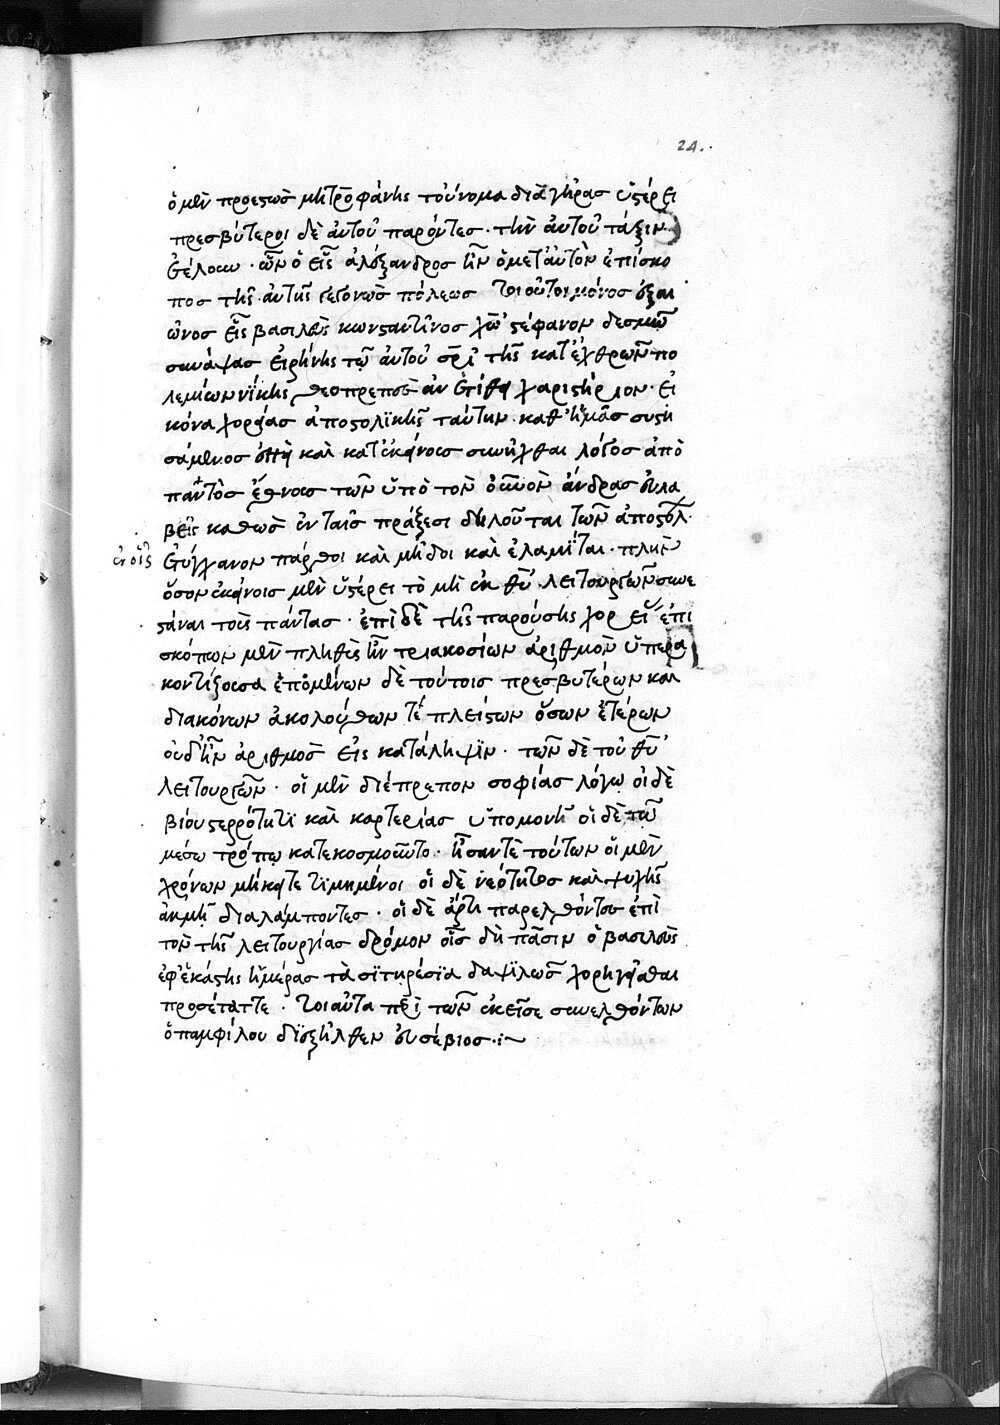 24.
ὁ μὲν προεστὼς μητροφάνης τοὔνομα διὰ γῆρας ὑστέρει
πρεσβύτεροι δὲ αὐτοῦ παρόντες· τὴν αὐτοῦ τάξιν
ἐτέλουν· ὧν ὁ εἷς ἀλέξανδρος ἦν ὁ μετ αὐτὸν ἐπίσκο
πος τῆς αὐτῆς γεγονὼς πόλεως τοιοῦτον μόνος ἐξ αι
ῶνος εἷς βασιλεὺς κωνσταντῖνος χῶ στέφανον δεσμῶ
συνάψας εἰρήνης τῷ αὐτοῦ σρι τῆς κατ ἐχθρῶν πο
λεμίων νίκης θεοπρεπὲς ἀνετίθη χαριστήριον· εἰ
κόνα χορείας ἀποστολϊκῆς ταύτην καθ ἡμᾶς συστη
σάμενος ἐπεὶ καὶ κατ ἐκείνους συνῆχθαι λόγος ἀπὸ
παντὸς ἔθνους τῶν ὑπὸ τὸν οὐνὸν ἄνδρας εὐλα
βεῖς καθὼς ἐν ταῖς πράξεσι δηλοῦται τῶν ἀποστόλ·
ἐν οἷς ἐτύγχανον πάρθοι καὶ μῆδοι καὶ ἐλαμῖται· πλὴν
ὅσον ἐκείνοις μὲν ὑστέρει τὸ μὴ ἐκ θυ λειτουργῶν συνε
στάναι τοὺς πάντας· ἐπὶ δὲ τῆς παρούσης χορείας ἐπι
σκόπων μὲν πλῆθος ἦν τριακοσίων ἀριθμὸν ὑπερα
κοντίζουσα ἑπομένων δὲ τούτοις πρεσβυτέρων καὶ
διακόνων ἀκολούθων τὲ πλείστων ὅσων ἑτέρων
οὐδ ἦν ἀριθμὸς εἰς κατάληψϊν· τῶν δὲ τοῦ θυ
λειτουργῶν· οἱ μὲν διέπρεπον σοφίας λόγω οἱ δὲ
βίου στερρότητι καὶ καρτερίας ὑπομονῆ οἱ δὲ τῶ
μέσω τρόπω κατεκοσμοῦντο· ἦσαν τὲ τούτων οἱ μὲν
χρόνων μήκει τετϊμημένοι οἱ δὲ νεότητος καὶ ψυχῆς
ἀκμῆ διαλάμποντες· οἱ δὲ ἄρτι παρελθόντες ἐπὶ
τὸν τῆς λειτουργίας δρόμον οἷς δὴ πᾶσιν ὁ βασιλεὺς
ἐφ ἑκάστης ἡμέρας τὰ σϊτηρέσϊα δαψϊλῶς χορηγεῖσθαι
προσέταττε· τοιαῦτα πρὶ τῶν ἐκεῖσε συνελθόντων
ὁ παμφίλου δϊεξῆλθεν εὐσέβιος·:~